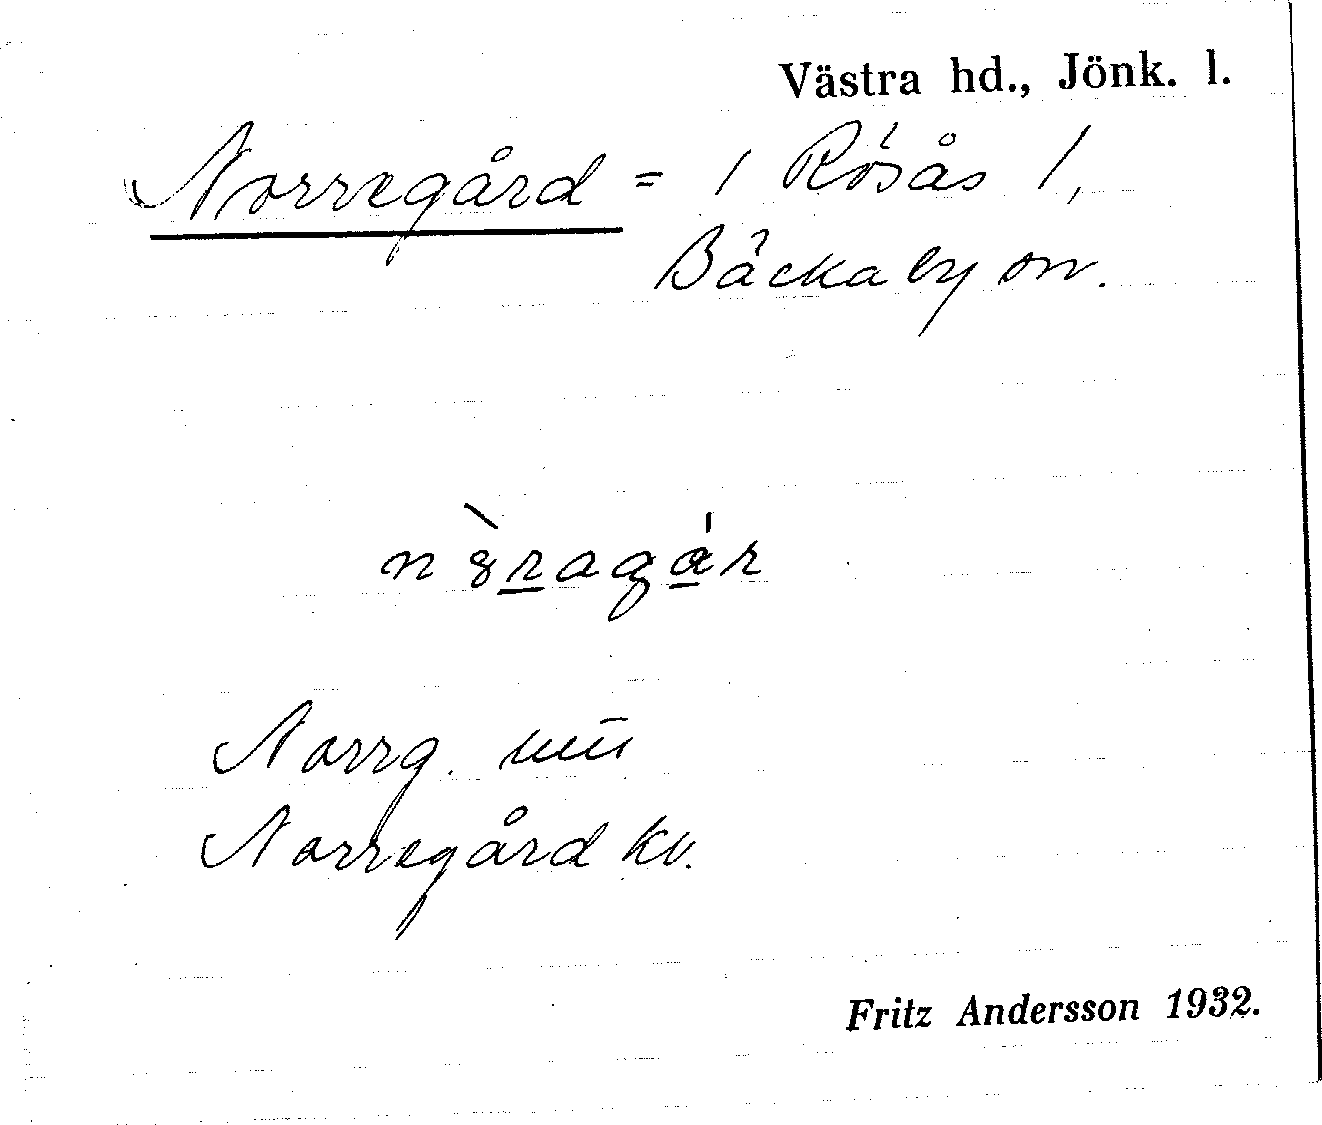 Västra hd., Jönk. l.
Norregård = / Rösås /,
Bäckaby sn.
nȣ̀ragár
Norrg.
Norregård kv.
Fritz Andersson 1932.